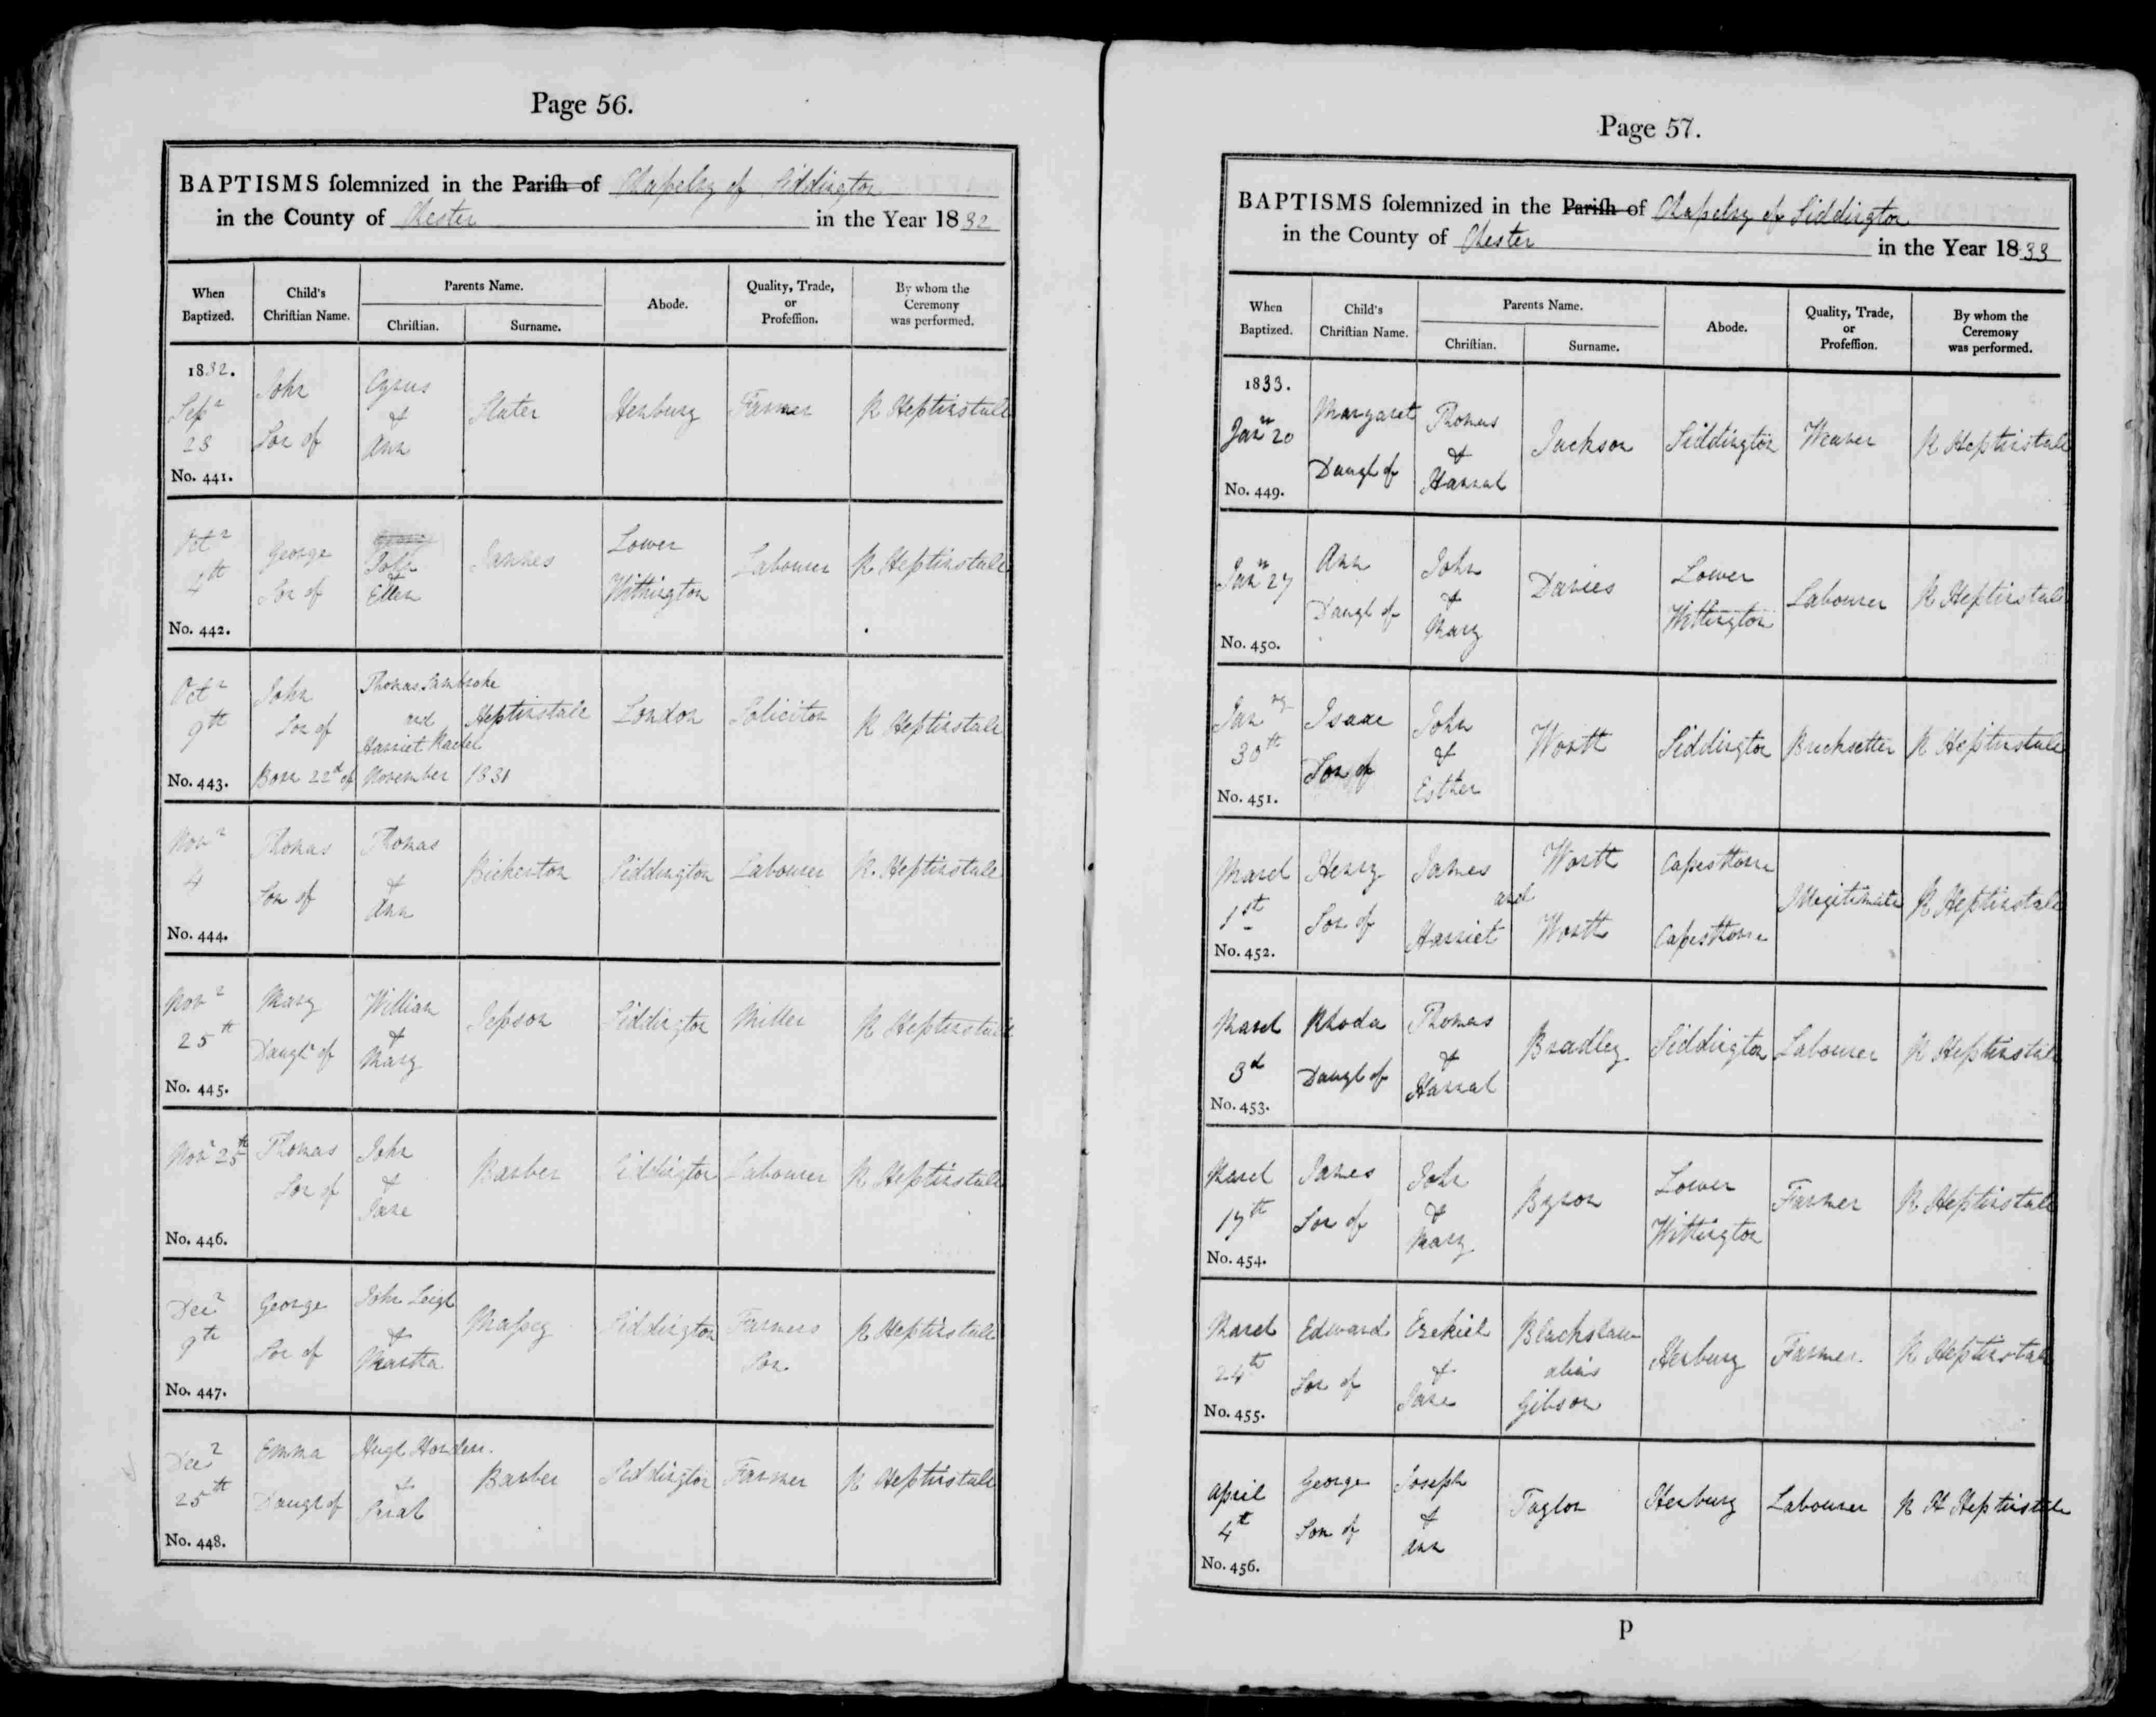 Page 56.
BAPTISMS solemnized in the Parish of Chapelry of Siddington
in the County of Chester in the Year 1832
When Baptized.
Child's Christian Name.
Parents Name.
Christian.
Surname.
Abode.
Quality, Trade, or Profession.
By whom the Ceremony was performed.
1832.
Sepr
23
No. 441.
John
Son of
Cyrus
&
Ann
Slater
Henbury
Farmer
R Heptinstall
Octr
4th
No. 442.
George
Son of
John
&
Ellen
Jannes
Lower
Withington
Labourer
R Heptinstall
Octr
9th
No. 443.
John
Son of
Born 22d of November 1831
Thomas Sambroke
and
Harriet Rachel
Heptinstall
London
Solicitor
R Heptinstall
Novr
4
No. 444.
Thomas
Son of
Thomas
&
Ann
Bickerton
Siddington
Labourer
R. Heptinstall
Novr
25th
No. 445.
Mary
Daughr of
William
&
Mary
Jepson
Siddington
Miller
R Heptinstall
Novr 25th
No. 446.
Thomas
Son of
John
&
Jane
Barber
Siddington
Labourer
R Heptinstall
Decr
9th
No. 447.
George
Son of
John Leigh
&
Martha
Massey
Siddington
Farmers
Son
R Heptinstall
Decr
25th
No. 448.
Emma
Daugh of
Hugh Hordern
&
Sarah
Barber
Siddington
Farmer
R Heptinstall
Page 57.
BAPTISMS solemnized in the Parish of Chapelry of Siddington
in the County of Chester in the Year 1833
When Baptized.
Child's Christian Name.
Parents Name.
Christian.
Surname.
Abode.
Quality, Trade, or Profession.
By whom the Ceremony was performed.
1833.
Jany 20
No. 449.
Margaret
Daugh of
Thomas
&
Hannah
Jackson
Siddington
Weaver
R Heptinstall
Jany 27
No. 450.
Ann
Daugh of
John
&
Mary
Davies
Lower
Withington
Labourer
R Heptinstall
Jany
30th
No. 451.
Isaac
Son of
John
&
Esther
Worth
Siddington
Bricksetter
R Heptinstall
March
1st
No. 452.
Henry
Son of
James
and
Harriet
Worth
Worth
Capesthorne
Capesthorne
Illegitimate
R Heptinstall
March
3d
No. 453.
Rhoda
Daugh of
Thomas
&
Hannah
Bradley
Siddington
Labourer
R Heptinstall
March
17th
No. 454.
James
Son of
John
&
Mary
Byron
Lower
Withington
Farmer
R Heptinstall
March
24th
No. 455.
Edward
Son of
Ezekiel
&
Jane
Blackshaw
alias
Gibson
Henbury
Farmer
R Heptinstall
April
4th
No. 456.
George
Son of
Joseph
&
Ann
Taylor
Henbury
Labourer
R H Heptinstall
P